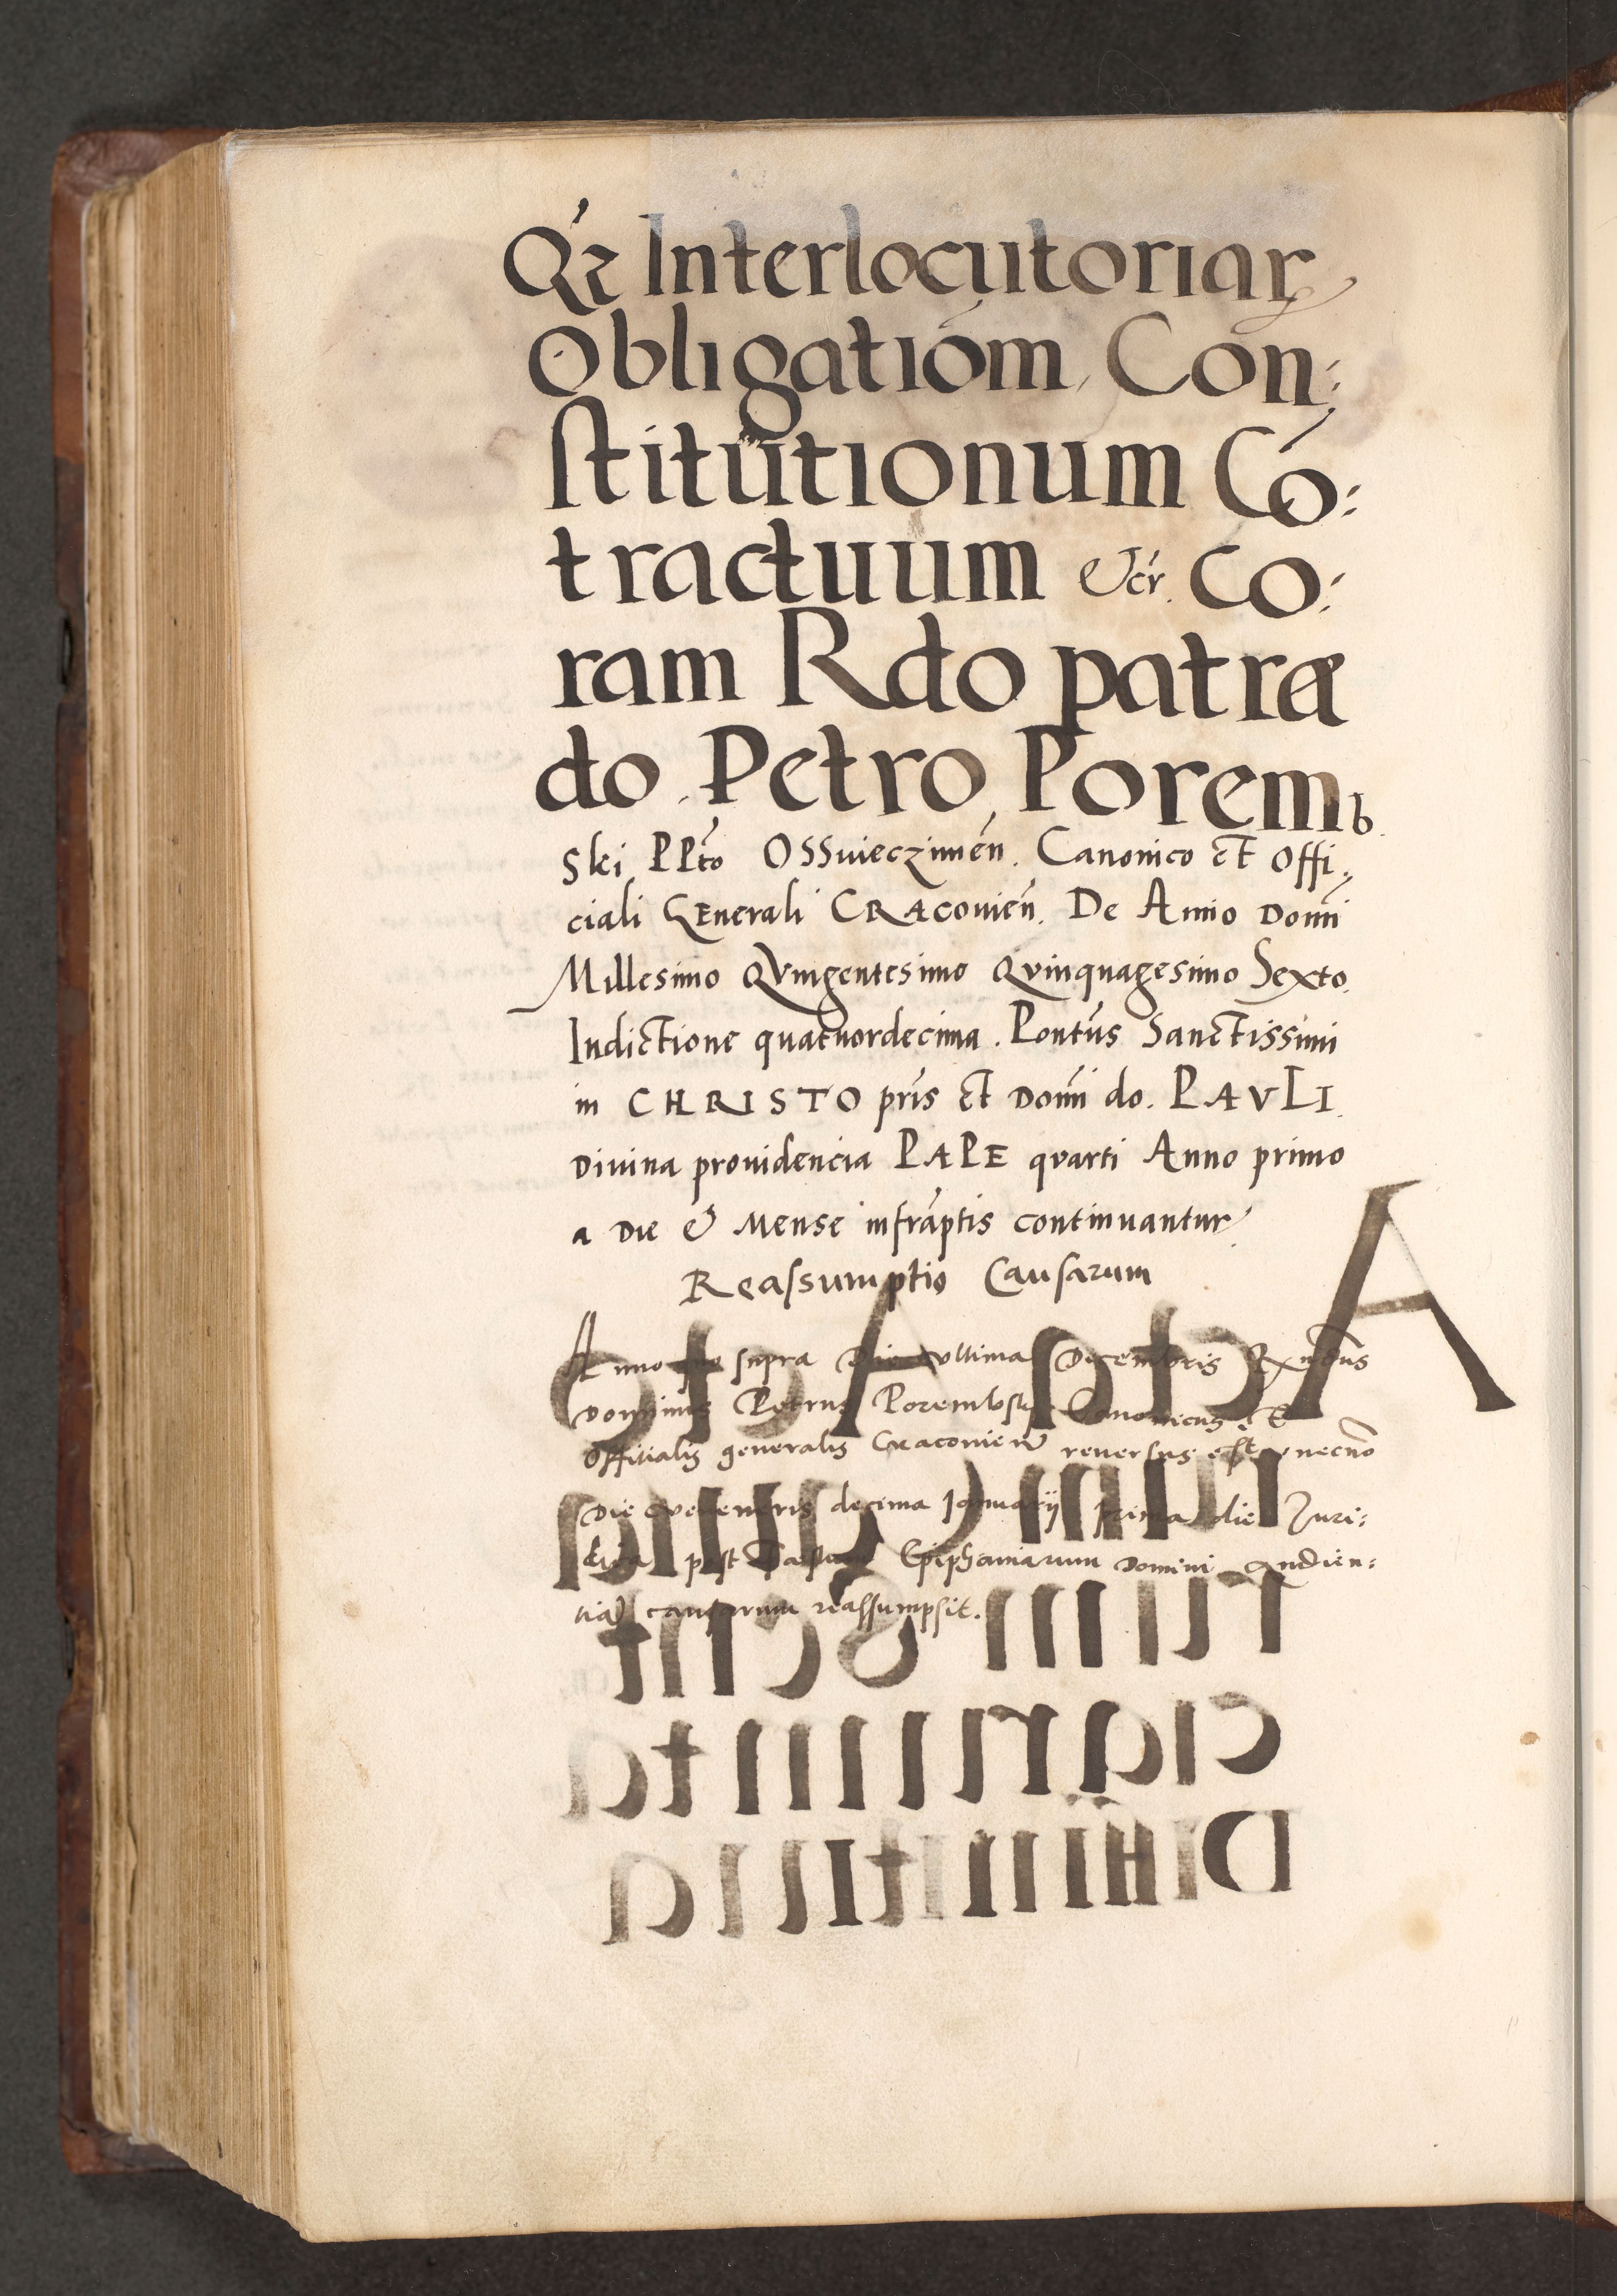 Qȝ Interlocutoriaꝝ
Obligatiom̄, Con:
stitutionum Cō:
tractuum &cr̄. Co:
ram Rdo patre
do. Petro Poremb
ski PPto Ossuieczimen̄. Canonico et Offi:
ciali Generali CRACouien̄. De Anno Domi
Millesimo Quingentesimo Quinquagesimo Sexto.
Indictione quatuordecima. Pontus Sanctissimi
in CHRISTO pris et Domi do. PAVLI
Diuina prouidencia PAPE quarti Anno primo
a Die & Mense infraptis continuantur
Reassumptio Causarum
Anno supra Die vltima Decembris Rxndus
Dominus Petrus Porembski Canonicus Et
Offitialis generalis Cracovien̄ reuersus est necno
Die veneris decima Januarij prima die Juri:
dica post Festum Epiphaniarum Domini Audien:
tiā causarum reassumpsit.